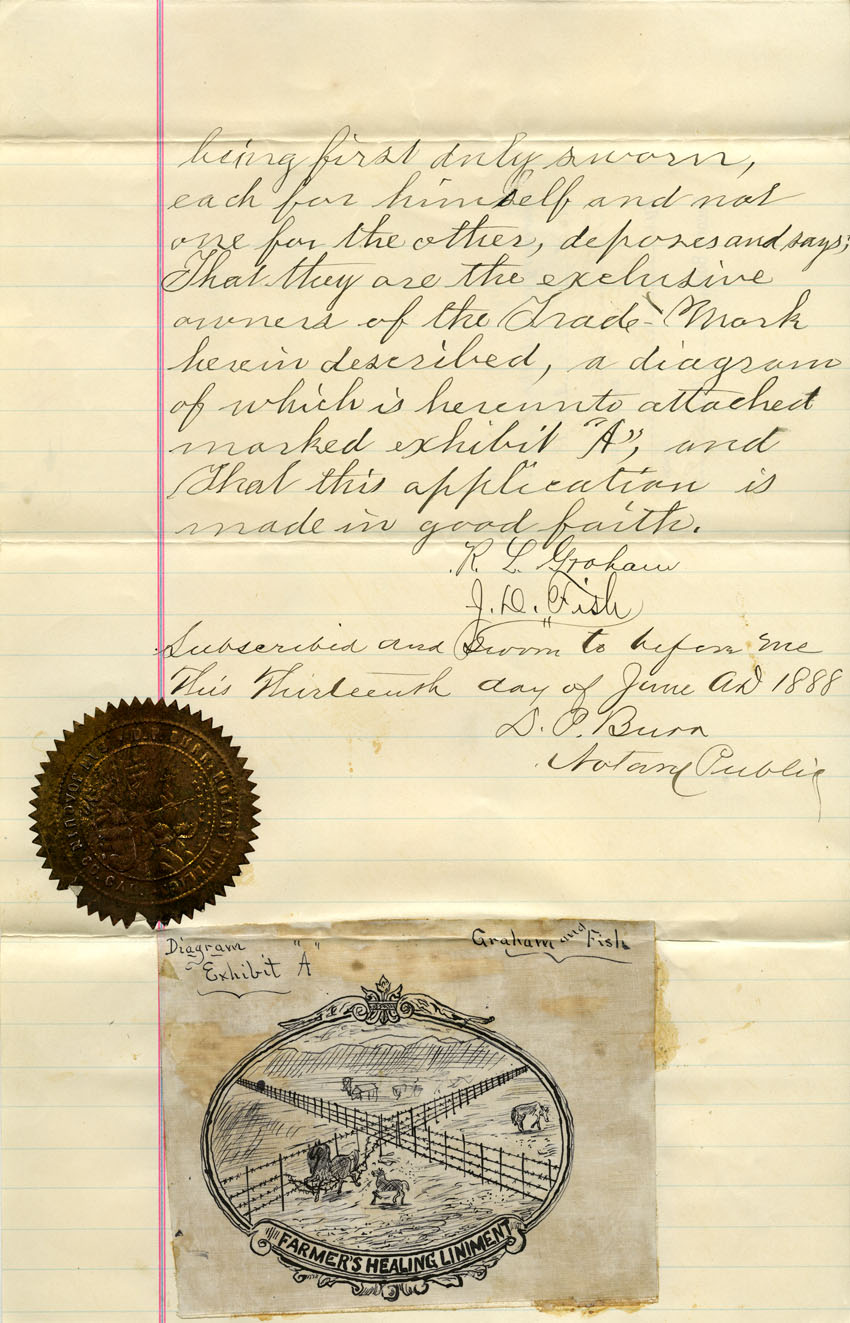 being first duly sworn,
each for himself and not
one for the other, deposes and says;
That they are the exclusive
owners of the Trade-Mark
herein described, a diagram
of which is hereunto attached
marked exhibit "A", and
That this application is
made in good faith.
R. L. Graham
J. D. Fish
Subscribed and Sworn to before me
This Thirteenth day of June AD 1888
D. P. Burr
Notary Public
NOTARY PUBLIC
Diagram "A"
Exhibit
Graham and Fish
FARMER'S HEALING LINIMENT